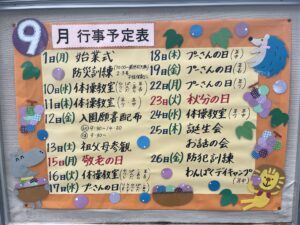 9月 行事予定表
1日(月) 始業式
防災訓練
10日(水) 体操教室
11日(木) 体操教室
12日(金) 入園願書配布
13日(土) 祖父母参観
15日(月) 敬老の日
16日(火) 体操教室
17日(水) プーさんの日
18日(木) プーさんの日
19日(金) プーさんの日
22日(月) プーさんの日
23日(火) 秋分の日
24日(水) 体操教室
25日(木) 誕生会
お話の会
26日(金) 防犯訓練
わんぱくデイキャンプ